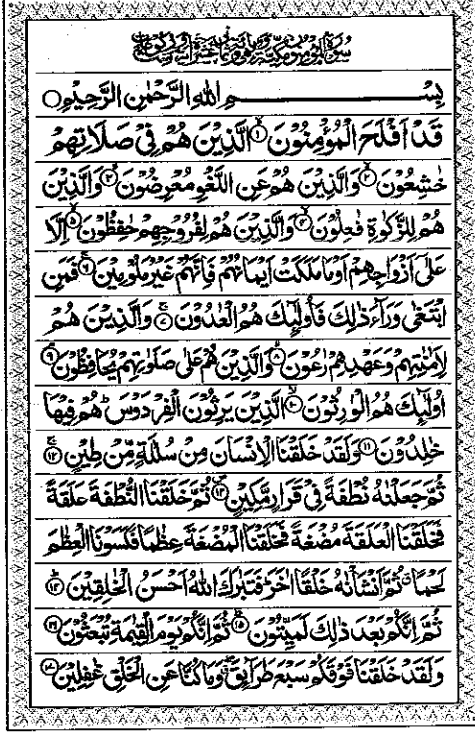 سُوْرَةُ الْمُؤْمِنُوْنَ مَكِّيَّةٌ
بِسْمِ اللهِ الرَّحْمٰنِ الرَّحِيْمِ ○
قَدْ اَفْلَحَ الْمُؤْمِنُوْنَ ١ الَّذِيْنَ هُمْ فِيْ صَلَاتِهِمْ
خٰشِعُوْنَ ٢ وَالَّذِيْنَ هُمْ عَنِ اللَّغْوِ مُعْرِضُوْنَ ٣ وَالَّذِيْنَ
هُمْ لِلزَّكٰوةِ فٰعِلُوْنَ ٤ وَالَّذِيْنَ هُمْ لِفُرُوْجِهِمْ حٰفِظُوْنَ ٥ اِلَّا
عَلٰى اَزْوَاجِهِمْ اَوْ مَا مَلَكَتْ اَيْمَانُهُمْ فَاِنَّهُمْ غَيْرُ مَلُوْمِيْنَ ٦ فَمَنِ
ابْتَغٰى وَرَآءَ ذٰلِكَ فَاُولٰٓئِكَ هُمُ الْعٰدُوْنَ ٧ وَالَّذِيْنَ هُمْ
لِاَمٰنٰتِهِمْ وَعَهْدِهِمْ رٰعُوْنَ ٨ وَالَّذِيْنَ هُمْ عَلٰى صَلَوٰتِهِمْ يُحَافِظُوْنَ ٩
اُولٰٓئِكَ هُمُ الْوٰرِثُوْنَ ١٠ الَّذِيْنَ يَرِثُوْنَ الْفِرْدَوْسَ ط هُمْ فِيْهَا
خٰلِدُوْنَ ١١ وَلَقَدْ خَلَقْنَا الْاِنْسَانَ مِنْ سُلٰلَةٍ مِّنْ طِيْنٍ ١٢
ثُمَّ جَعَلْنٰهُ نُطْفَةً فِيْ قَرَارٍ مَّكِيْنٍ ١٣ ثُمَّ خَلَقْنَا النُّطْفَةَ عَلَقَةً
فَخَلَقْنَا الْعَلَقَةَ مُضْغَةً فَخَلَقْنَا الْمُضْغَةَ عِظٰمًا فَكَسَوْنَا الْعِظٰمَ
لَحْمًا ثُمَّ اَنْشَاْنٰهُ خَلْقًا اٰخَرَ فَتَبٰرَكَ اللهُ اَحْسَنُ الْخٰلِقِيْنَ ١٤
ثُمَّ اِنَّكُمْ بَعْدَ ذٰلِكَ لَمَيِّتُوْنَ ١٥ ثُمَّ اِنَّكُمْ يَوْمَ الْقِيٰمَةِ تُبْعَثُوْنَ ١٦
وَلَقَدْ خَلَقْنَا فَوْقَكُمْ سَبْعَ طَرَآئِقَ وَمَا كُنَّا عَنِ الْخَلْقِ غٰفِلِيْنَ ١٧